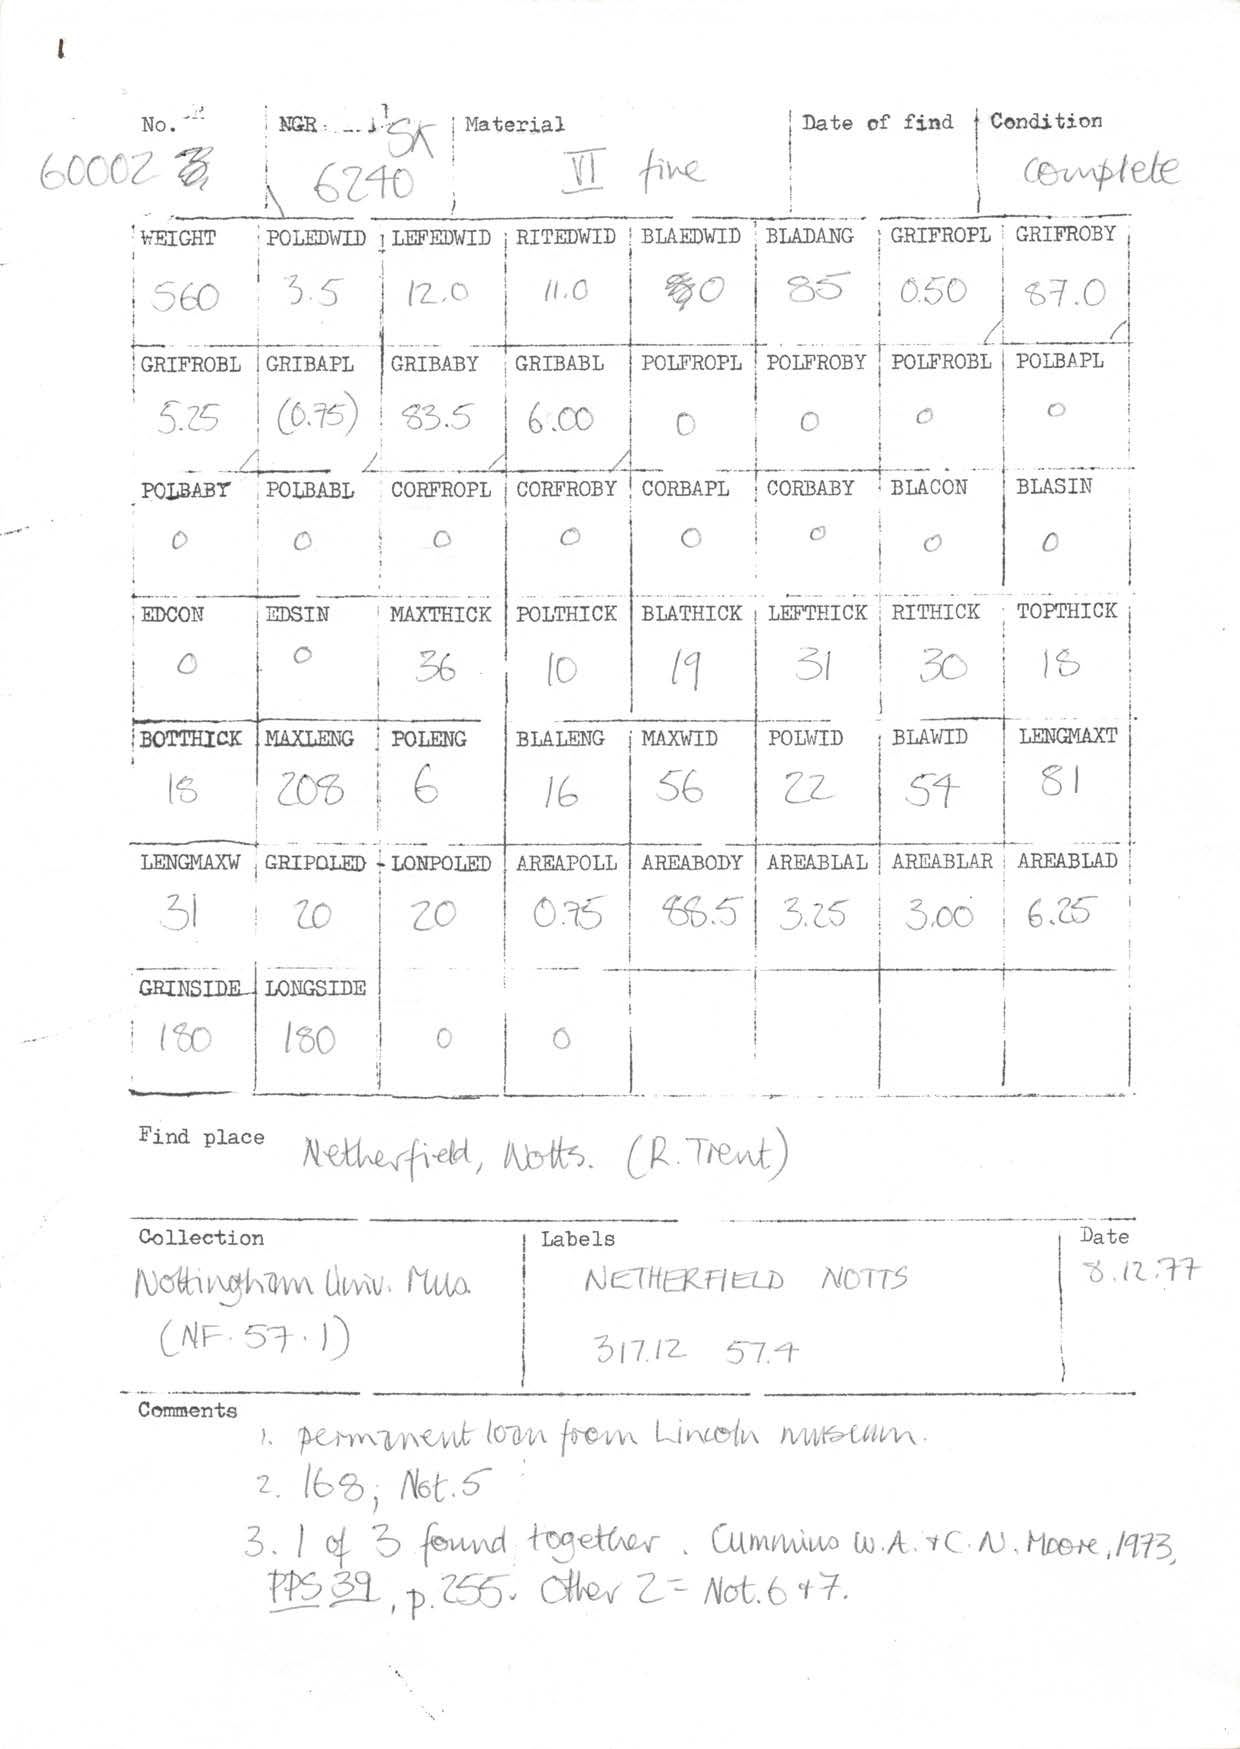 1
No. NGR SK Material Date of find Condition
60002 6240 VI fine complete
WEIGHT POLEDWID LEFEDWID RITEDWID BLAEDWID BLADANG GRIFROPL GRIFROBY
560 3.5 12.0 11.0 0 85 0.50 87.0
GRIFROBL GRIBAPL GRIBABY GRIBABL POLFROPL POLFROBY POLFROBL POLBAPL
5.25 (0.75) 83.5 6.00 0 0 0 0
POLBABY POLBABL CORFROPL CORFROBY CORBAPL CORBABY BLACON BLASIN
0 0 0 0 0 0 0 0
EDCON EDSIN MAXTHICK POLTHICK BLATHICK LEFTHICK RITHICK TOPTHICK
0 0 36 10 19 31 30 18
BOTTHICK MAXLENG POLENG BLALENG MAXWID POLWID BLAWID LENGMAXT
18 208 6 16 56 22 54 81
LENGMAXW GRIPOLED LONPOLED AREAPOLL AREABODY AREABLAL AREABLAR AREABLAD
31 20 20 0.75 88.5 3.25 3.00 6.25
GRINSIDE LONGSIDE
180 180 0 0
Find place Netherfield, Notts. (R. Trent)
Collection Labels Date
Nottingham Univ. Mus. NETHERFIELD NOTTS 8.12.77
(NF.57.1) 317.12 57.4
Comments
1. permanent loan from Lincoln museum.
2. 168; Not.5
3. 1 of 3 found together. Cummins W.A. + C.N. Moore, 1973,
PPS 39, p.255. Other 2 = Not.6 + 7.